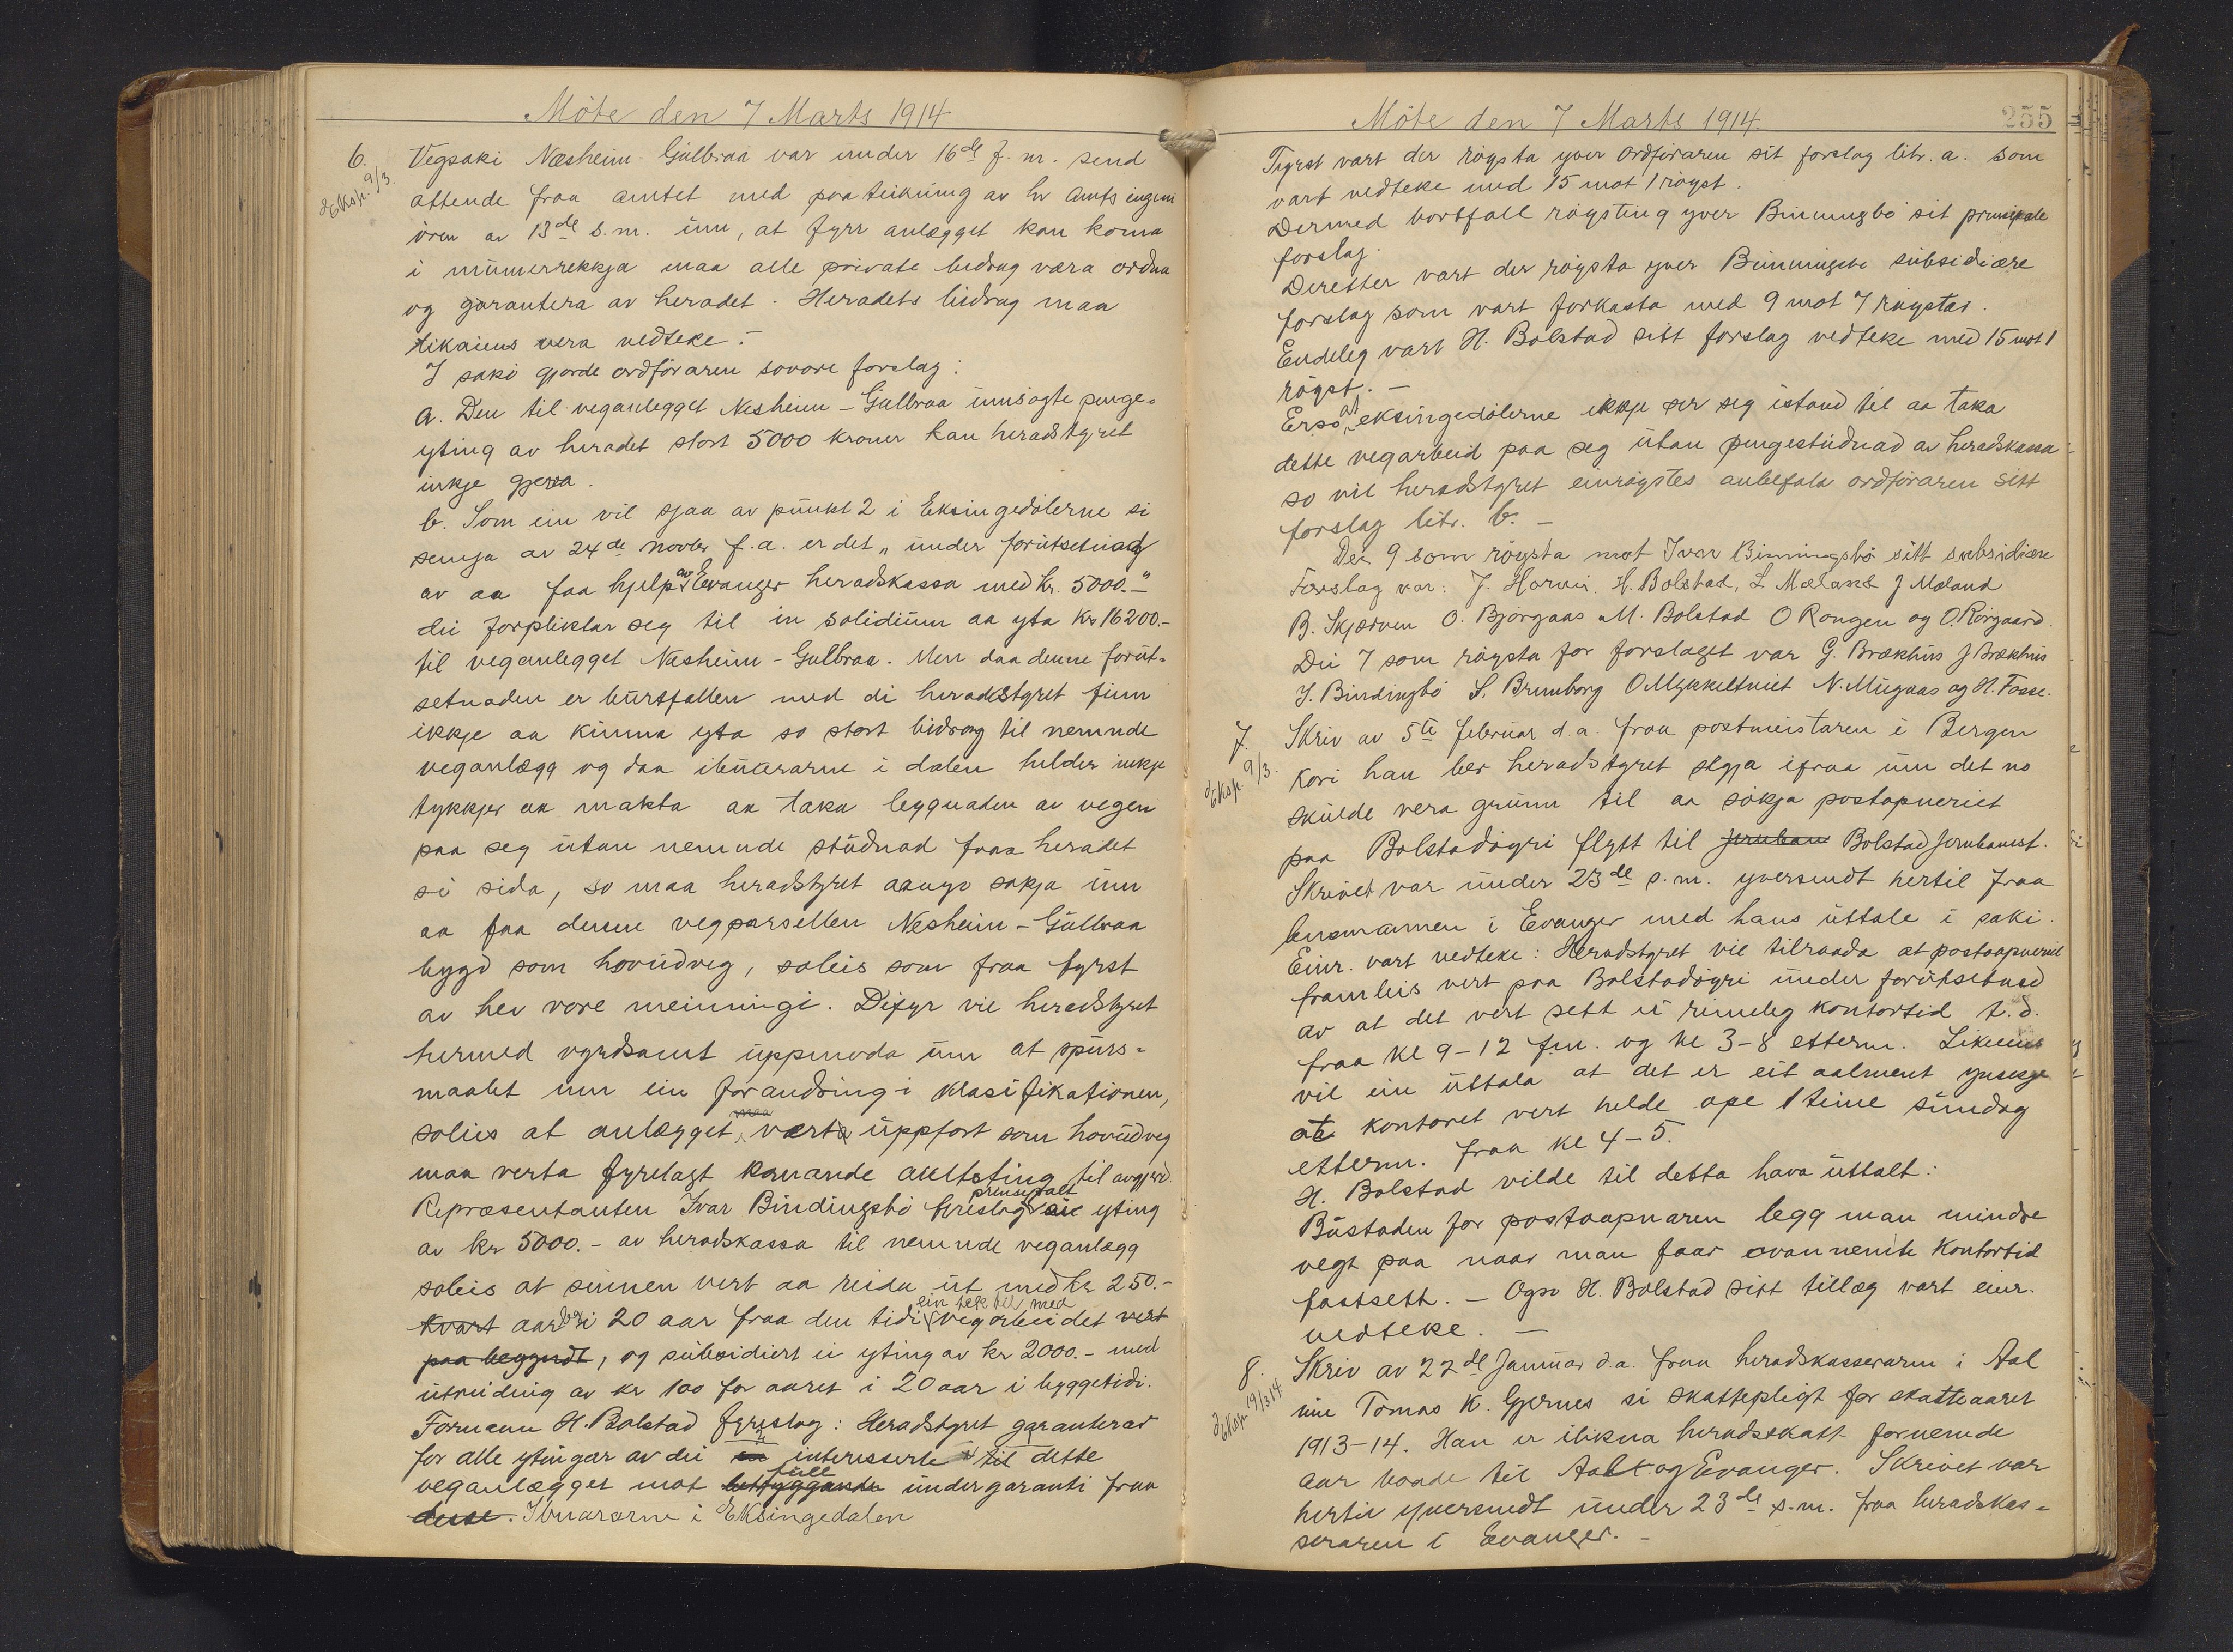 Möte den 7 Marts 1914
6. Vegsaki Næsheim-Gulbraa var under 16de f.m. send
dEksp. 9/3.
attende fraa amtet med paateikning av hr Amtsingeni
ören av 13de s.m. um, at fyrr anlægget kan koma
i numerrekkja maa alle private bidrag væra ordna
og garantera av heradet. Heradets bidrag maa
likaiens vera vedteke.-
I saki gjorde ordföraren sovore forslag:
a. Den til veganlegget Nesheim-Gulbraa innsögte penge-
yting av heradet stort 5000 kroner kan heradstyret
inkje gjera.
b. Som ein vil sjaa av punkt 2 i Eksingedölerne si
semja av 24de novbr f.a. er det "under forutsetnad
av aa faa hjelp av Evanger heradskassa med kr. 5000.-"
dei forpliktar seg til in solidum aa yta kr 16200.-
til veganlegget Næsheim-Gulbraa. Men daa denne forut-
setnaden er burtfallen med di heradstyret finn
ikkje aa kunna yta so stort bidrag til nemnde
veganlægg og daa ibuararne i dalen helder inkje
tykkjer aa makta aa taka byggnaden av vegen
paa seg utan nemnde studnad fraa heradet
si sida, so maa heradstyret aanyo søkja um
aa faa denne vegparsellen Nesheim-Gulbraa
bygd som hovudveg, soleis som fraa fyrst
av hev vore meiningi. Difyr vil heradstyret
hermed vyrdsamt uppmoda um at spurs-
maalet um ein forandring i klasifikationen,
soleis at anlægget maa verta uppfört som hovudveg
maa verta fyrelagt komande amtsting til avgjerd.
Repræsentanten Ivar Bindingsbö fyreslog prinsepalt ei yting
av kr 5000.- av heradskassa til nemnde veganlægg
soleis at summen vert aa reida ut med kr 250.-
kvart aar i 20 aar fraa den tidi ein tek til med vegarbeidet vert
paa begyndt, og subsidiert ei yting av kr 2000.- med
utreiding av kr 100 for aaret i 20 aar i byggetidi.
Formann H. Bolstad fyreslog: Heradstyret garanterar
for alle ytingar av dei interesserte til dette
veganlægget mot full betryggande undergaranti fraa
desse. Ibuararne i Eksingedalen
Möte den 7 Marts 1914.
255
Fyrst vart der röysta yver ordföraren sit forslag litr. a. som
vart vedteke med 15 mot 1 röyst.
Dermed bortfall röysting yver Binningsbö sit prinsipale
forslag.
Deretter vart der röysta yver Binningsbö subsidiære
forslag som vart forkasta med 9 mot 7 röystar.
Endeleg vart H. Bolstad sitt forslag vedteke med 15 mot 1
röyst.-
Er so at eksingedölerne ikkje ser seg istand til aa taka
dette vegarbeid paa seg utan pengestudnad av heradskassa
so vil heradstyret einröystes anbefala ordföraren sitt
forslag litr. b.-
Dei 9 som röysta mot Ivar Binningsbö sitt subsidiære
Forslag var: J. Horvei, H. Bolstad, L Mæland J Mæland
B. Skjerven O. Bjørgaas M. Bolstad O Rongen og O. Rörgaard.
Dei 7 som röysta for forslaget var G. Brækhus J Brækhus
I. Bindingbö S. Brunborg O Mykkeltveit N. Mugaas og H. Fosse.
7. Skriv av 5te februar d.a. fraa postmeistaren i Bergen
dEksp. 9/3.
kori han ber heradstyret segja ifraa um det no
skulde vera grunn til aa søkja postopneriet
paa Bolstadöyri flytt til Jernban Bolstad Jernbanest.
Skrivet var under 23de s.m. yversendt hertil fraa
lensmannen i Evanger med hans uttale i saki.
Einr. vart vedteke: Heradstyret vil tilraada at postaapneriet
framleis vert paa Bolstadöyri under forutsetnad
av at det vert sett ei rimeleg kontortid t.d.
fraa kl 9-12 fm. og kl 3-8 etterm. Likeeins
vil ein uttala at det er eit aalment ynskje
at kontoret vert helde ope 1 time sundag
etterm. fraa kl 4-5.
H. Bolstad vilde til detta hava uttalt:
Bustaden for postaapnaren legg man mindre
vegt paa naar man faar ovannemte kontortid
fastsett.- Ogso H. Bolstad sitt tillæg vart einr.
vedteke.-
8. Skriv av 22de Januar d.a. fraa heradskasseraren i Aal
dEksp. 19/3 14.
um Tomas K. Gjernes si skattepligt for skatteaaret
1913-14. Han er ilikna heradsskatt fornemde
aar baade til Aal og Evanger. Skrivet var
hertil yversendt under 23de s.m. fraa heradskas-
seraren i Evanger.-